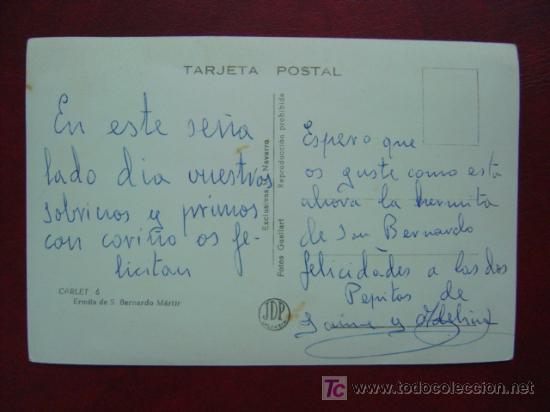 TARJETA POSTAL
En este seña
lado dia vuestros
sobrinos y primos
con cariño os fe-
licitan
CARLET 6
Ermita de S. Bernardo Mártir
Exclusivas Navarro
Fotos Guallart Reproducción prohibida
JDP
Espero que
os guste como está
ahora la hermita
de San Bernardo
felicidades a las dos
Pepitas de
Jaime y Adelina
TC
www.todocoleccion.net